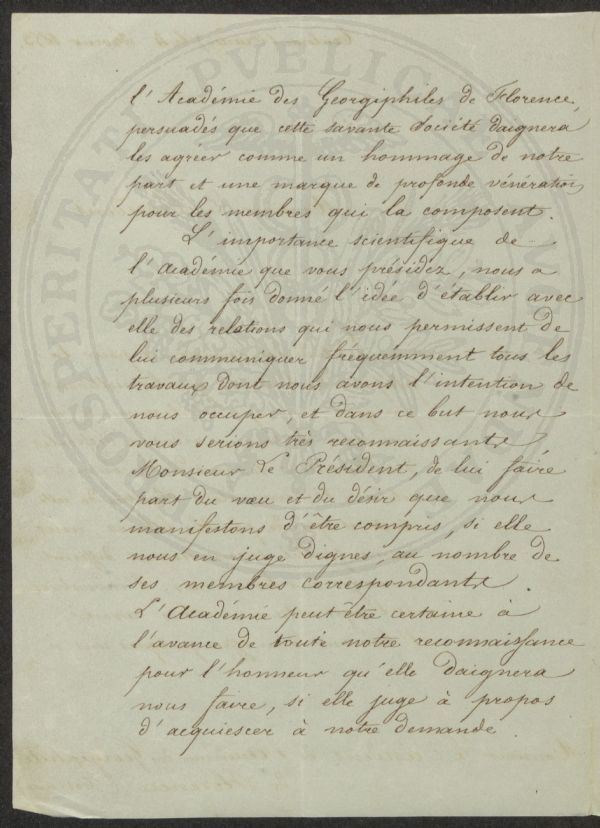 l'Académie des Georgiphiles de Florence,
persuadés que cette savante Société daignera
les agréer comme un hommage de notre
part et une marque de profonde vénération
pour les membres qui la composent.
L'importance scientifique de
l'Académie que vous présidez, nous a
plusieurs fois donné l'idée d'établir avec
elle des relations qui nous permissent de
lui communiquer fréquemment tous les
travaux dont nous avons l'intention de
nous occuper, et dans ce but nous
vous serions très reconnaissants,
Monsieur Le Président, de lui faire
part du vœu et du désir que nous
manifestons d'être compris, si elle
nous en juge dignes, au nombre de
ses membres correspondants.
L'Académie peut être certaine à
l'avance de toute notre reconnaissance
pour l'honneur qu'elle daignera
nous faire, si elle juge à propos
d'acquiescer à notre demande.